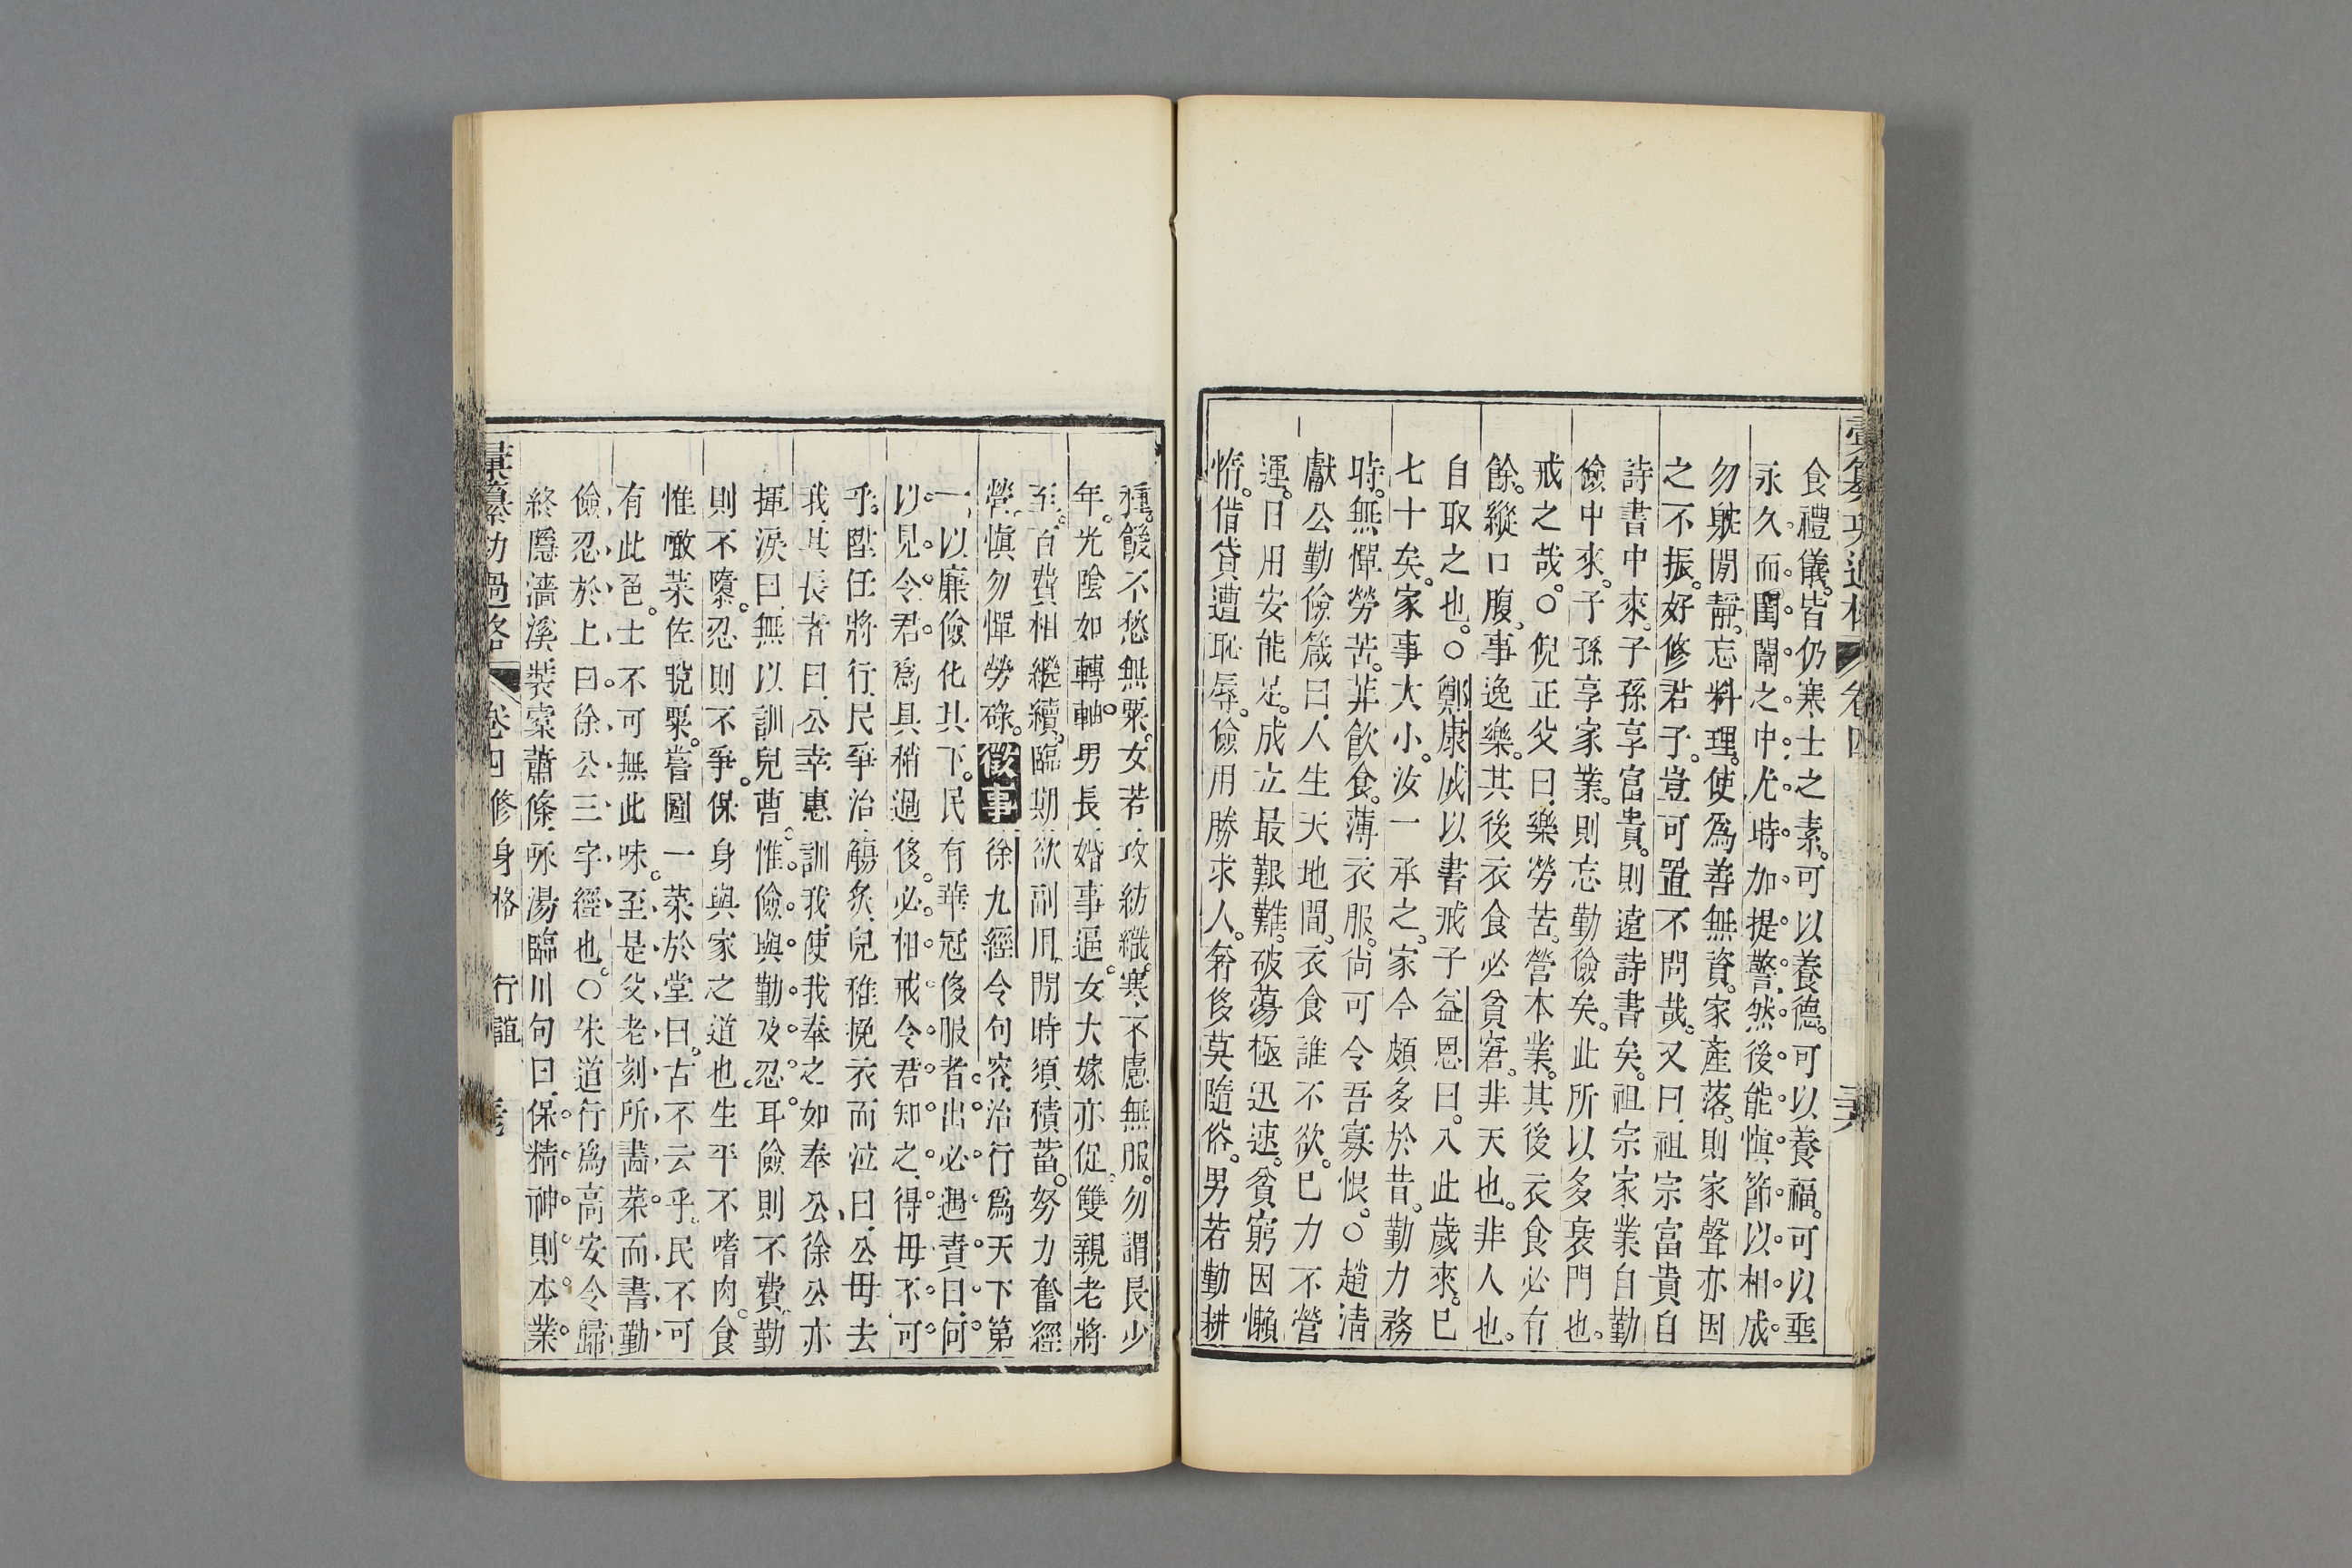 彙纂功過格 卷四 三六
食禮儀。皆仍寒士之素。可以養德。可以養福。可以垂
永久。而閨闈之中。尤時加提警。然後能慎節以相成。
勿躭閒靜。忘料理。使爲善無資。家產落。則家聲亦因
之不振。好修君子。豈可置不問哉。又曰。祖宗富貴自
詩書中來。子孫享富貴。則遠詩書矣。祖宗家業自勤
儉中來。子孫享家業。則忘勤儉矣。此所以多衰門也。
戒之哉。○倪正父曰。樂勞苦。營本業。其後衣食必有
餘。縱口腹。事逸樂。其後衣食必貧窘。非天也。非人也。
自取之也。○鄭康成以書戒子益恩曰。入此歲來。已
七十矣。家事大小。汝一承之。家今頗多於昔。勤力務
時。無憚勞苦。菲飲食。薄衣服。尚可令吾寡恨。○趙清
獻公勤儉箴曰。人生天地間。衣食誰不欲。已力不營
運。日用安能足。成立最艱難。破蕩極迅速。貧窮因懶
惰。借貸遭恥辱。儉用勝求人。奢侈莫隨俗。男若勤耕
種。餒不愁無粟。女若攻紡織。寒不慮無服。勿謂長少
年。光陰如轉軸。男長婚事逼。女大嫁亦促。雙親老將
至。百費相繼續。臨期欲副用。閒時須積蓄。努力奮經
營。慎勿憚勞碌。徵事 徐九經令句容。治行爲天下第
一。以廉儉化其下。民有華冠侈服者。出必遇責曰。何
以見令君。爲具稍過侈。必相戒令君知之。得毋不可
乎。陞任將行。民爭治觴炙。兒稚挽衣而泣曰。公毋去
我。其長者曰。公幸惠訓我。使我奉之如奉公。徐公亦
揮淚曰。無以訓兒曹。惟儉與勤及忍耳。儉則不費。勤
則不隳。忍則不爭。保身與家之道也。生平不嗜肉。食
惟噉菜佐脫粟。嘗圖一菜於堂曰。古不云乎。民不可
有此色。士不可無此味。至是父老刻所畵菜而書勤
儉忍於上曰。徐公三字經也。○朱道行爲高安令。歸
終隱濤溪。裝槖蕭條。咏湯臨川句曰。保精神則本業。
彙纂功過格 卷四 修身格 行誼